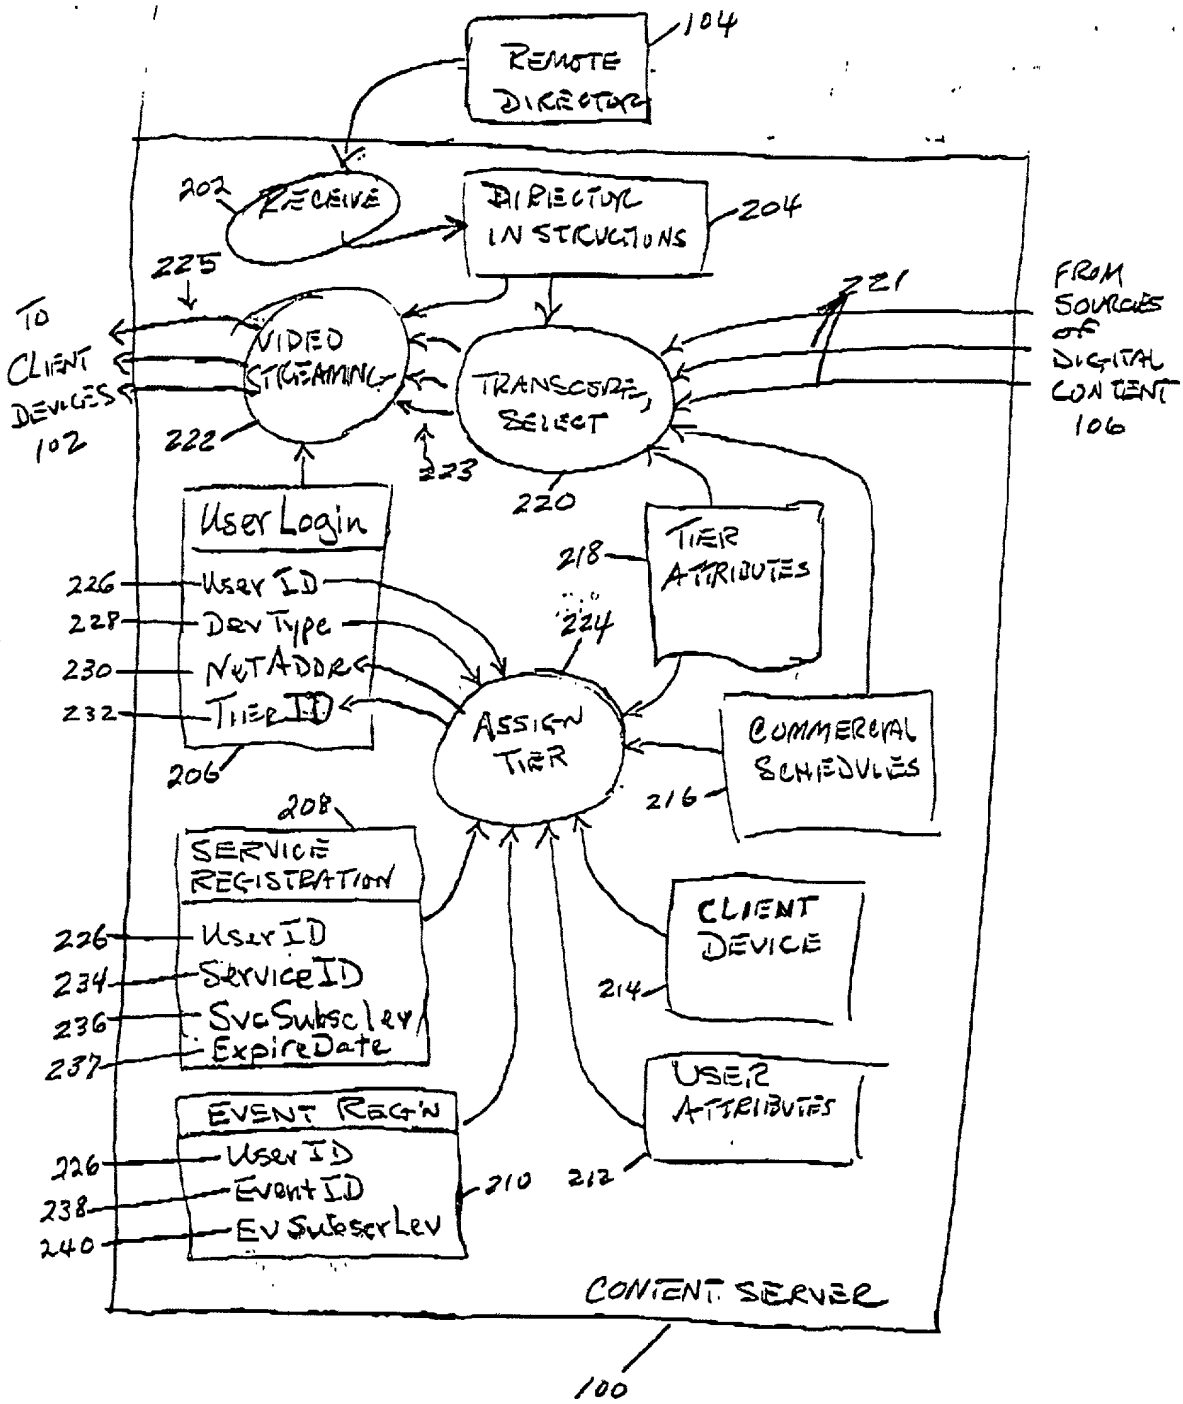 104
REMOTE
DIRECTOR
202
RECEIVE
DIRECTOR
INSTRUCTIONS
204
225
221
FROM
SOURCES
OF
DIGITAL
CONTENT
106
TO
CLIENT
DEVICES
102
VIDEO
STREAMING
222
TRANSCODE,
SELECT
223
220
User Login
226
User ID
228
Dev Type
230
NeT ADDR
232
TIER ID
206
218
TIER
ATTRIBUTES
224
ASSIGN
TIER
COMMERCIAL
SCHEDULES
216
208
SERVICE
REGISTRATION
226
User ID
234
Service ID
236
SvcSubscLev
237
ExpireDate
CLIENT
DEVICE
214
EVENT REG'N
226
User ID
238
Event ID
240
EvSubscrLev
210
USER
ATTRIBUTES
212
CONTENT SERVER
100